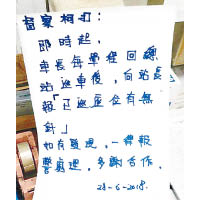 各家柯打:
即時起,
車長每單程回總
站返車後,向站長
報「已巡座位有無
針」
如有發現,一律報
警處理,多謝合作。
28-6-2018.